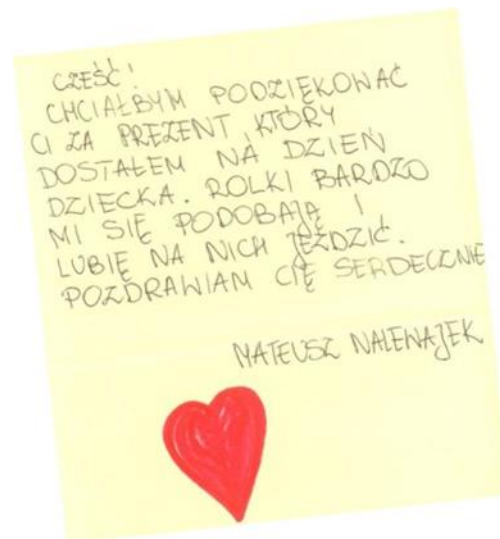 CZEŚĆ!
CHCIAŁBYM PODZIĘKOWAĆ
CI ZA PREZENT, KTÓRY
DOSTAŁEM NA DZIEŃ
DZIECKA. ROLKI BARDZO
MI SIĘ PODOBAJĄ I
LUBIĘ NA NICH JEŹDZIĆ.
POZDRAWIAM CIĘ SERDECZNIE
MATEUSZ NALEWAJEK